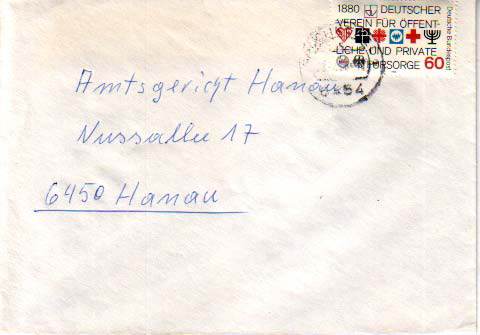 1880 DEUTSCHER
VEREIN FÜR ÖFFENT-
LICHE UND PRIVATE
FÜRSORGE 60
Deutsche Bundespost
Amtsgericht Hanau
Nussallee 17
6450 Hanau